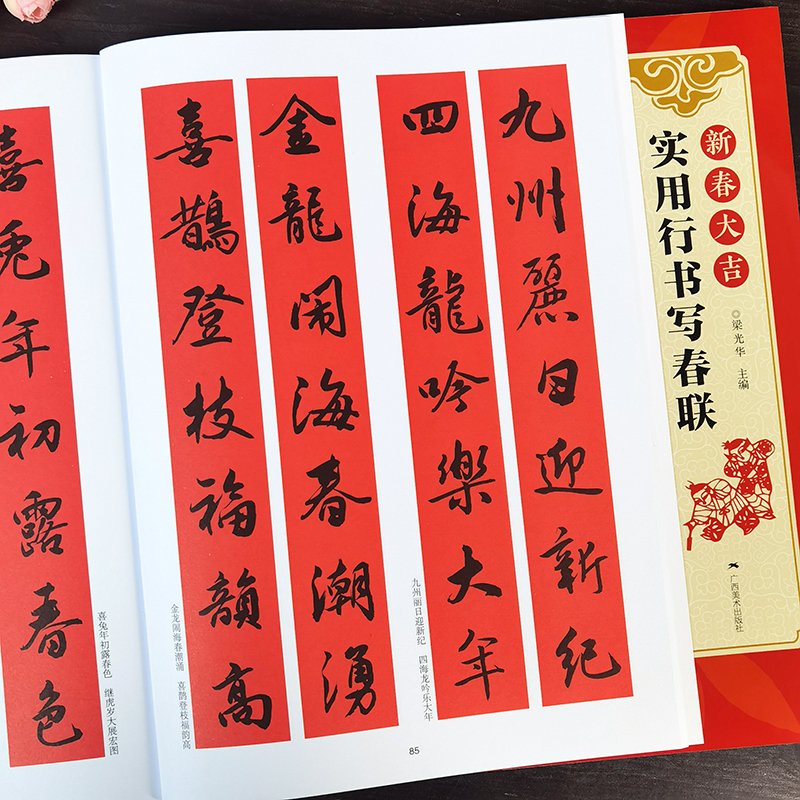 九州麗日迎新纪
四海龍吟樂大年
金龍闹海春潮湧
喜鵲登枝福韻高
九州丽日迎新纪 四海龙吟乐大年
金龙闹海春潮涌 喜鹊登枝福韵高
85
喜兔年初露春色
喜兔年初露春色 继虎岁大展宏图
新春大吉
实用行书写春联
◎梁光华 主编
广西美术出版社